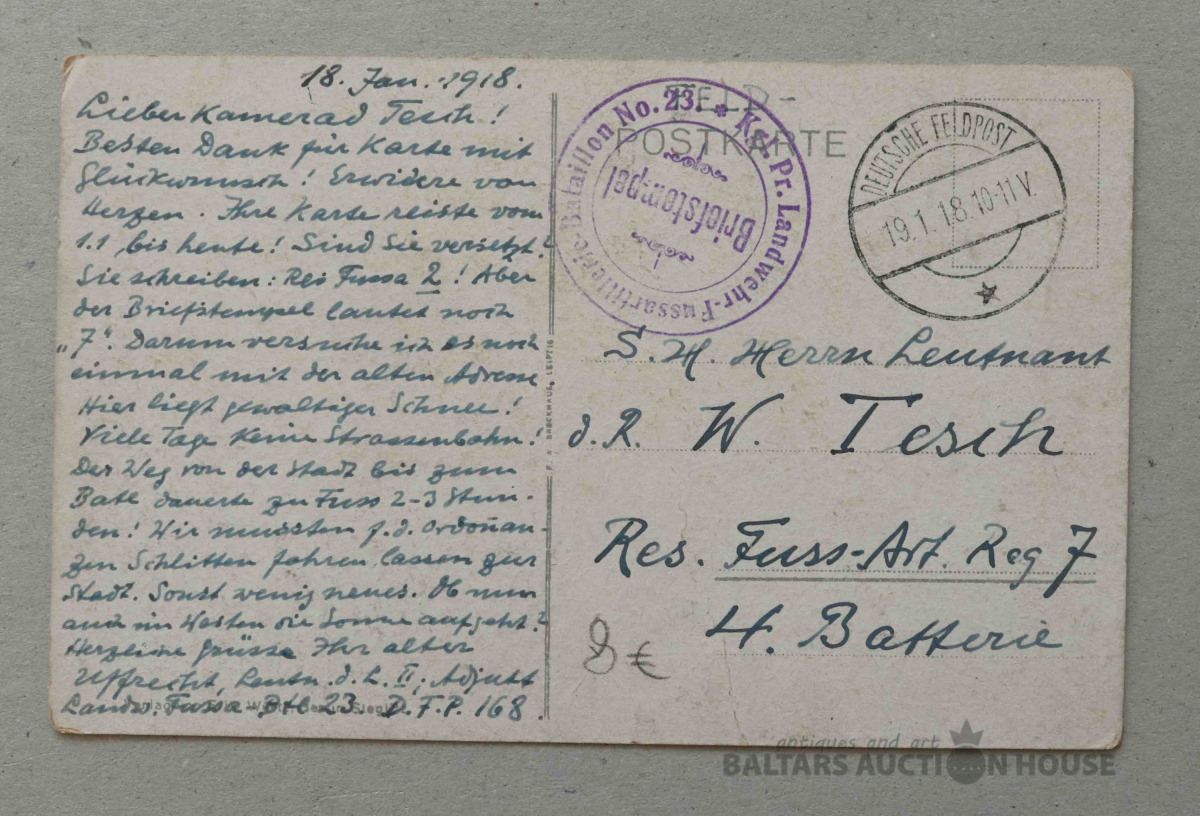 18. Jan. 1918.
Lieber Kamerad Tesch!
Besten Dank für Karte mit
Glückwunsch! Erwidere von
Herzen. Ihre Karte reiste vom
1.1 bis heute! Sind Sie versetzt?
Sie schreiben: Res Fussa 2! Aber
der Briefstempel lautet noch
„7“. Darum versuche ich es noch
einmal mit der alten Adresse
Hier liegt gewaltiger Schnee!
Viele Tage keine Strassenbahn!
Der Weg von der Stadt bis zum
Batl dauerte zu Fuss 2-3 Stun-
den! Wir mussten f. d. Ordonan-
zen Schlitten fahren lassen zur
Stadt. Sonst wenig neues. Ob nun
auch im Westen die Sonne aufgeht?
Herzliche Grüsse Ihr alter
Uffrecht, Leutn. d. L. II; Adjutt
Landw. Fussa Btl 23. D.F.P. 168.
FELD-
POSTKARTE
Kgl. Pr. Landwehr-Fussartillerie-Bataillon No. 23.
Briefstempel
DEUTSCHE FELDPOST
19.1.18.10-11 V.
F. A. BROCKHAUS, LEIPZIG
S. H. Herrn Leutnant
d. R. W. Tesch
Res. Fuss-Art. Reg 7
4. Batterie
8 €
antiques and art
BALTARS AUCTION HOUSE